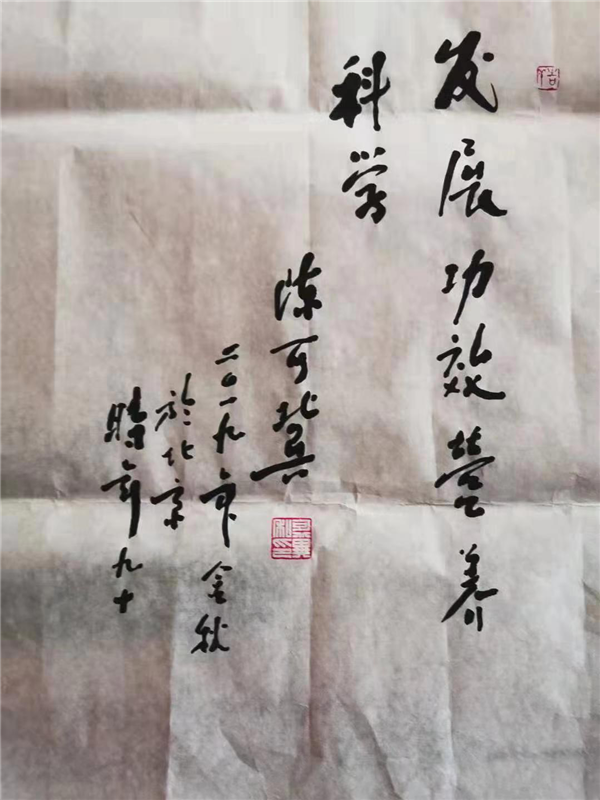 发展功效营养
科学
陈可冀
二〇一九年金秋
於北京
时年九十